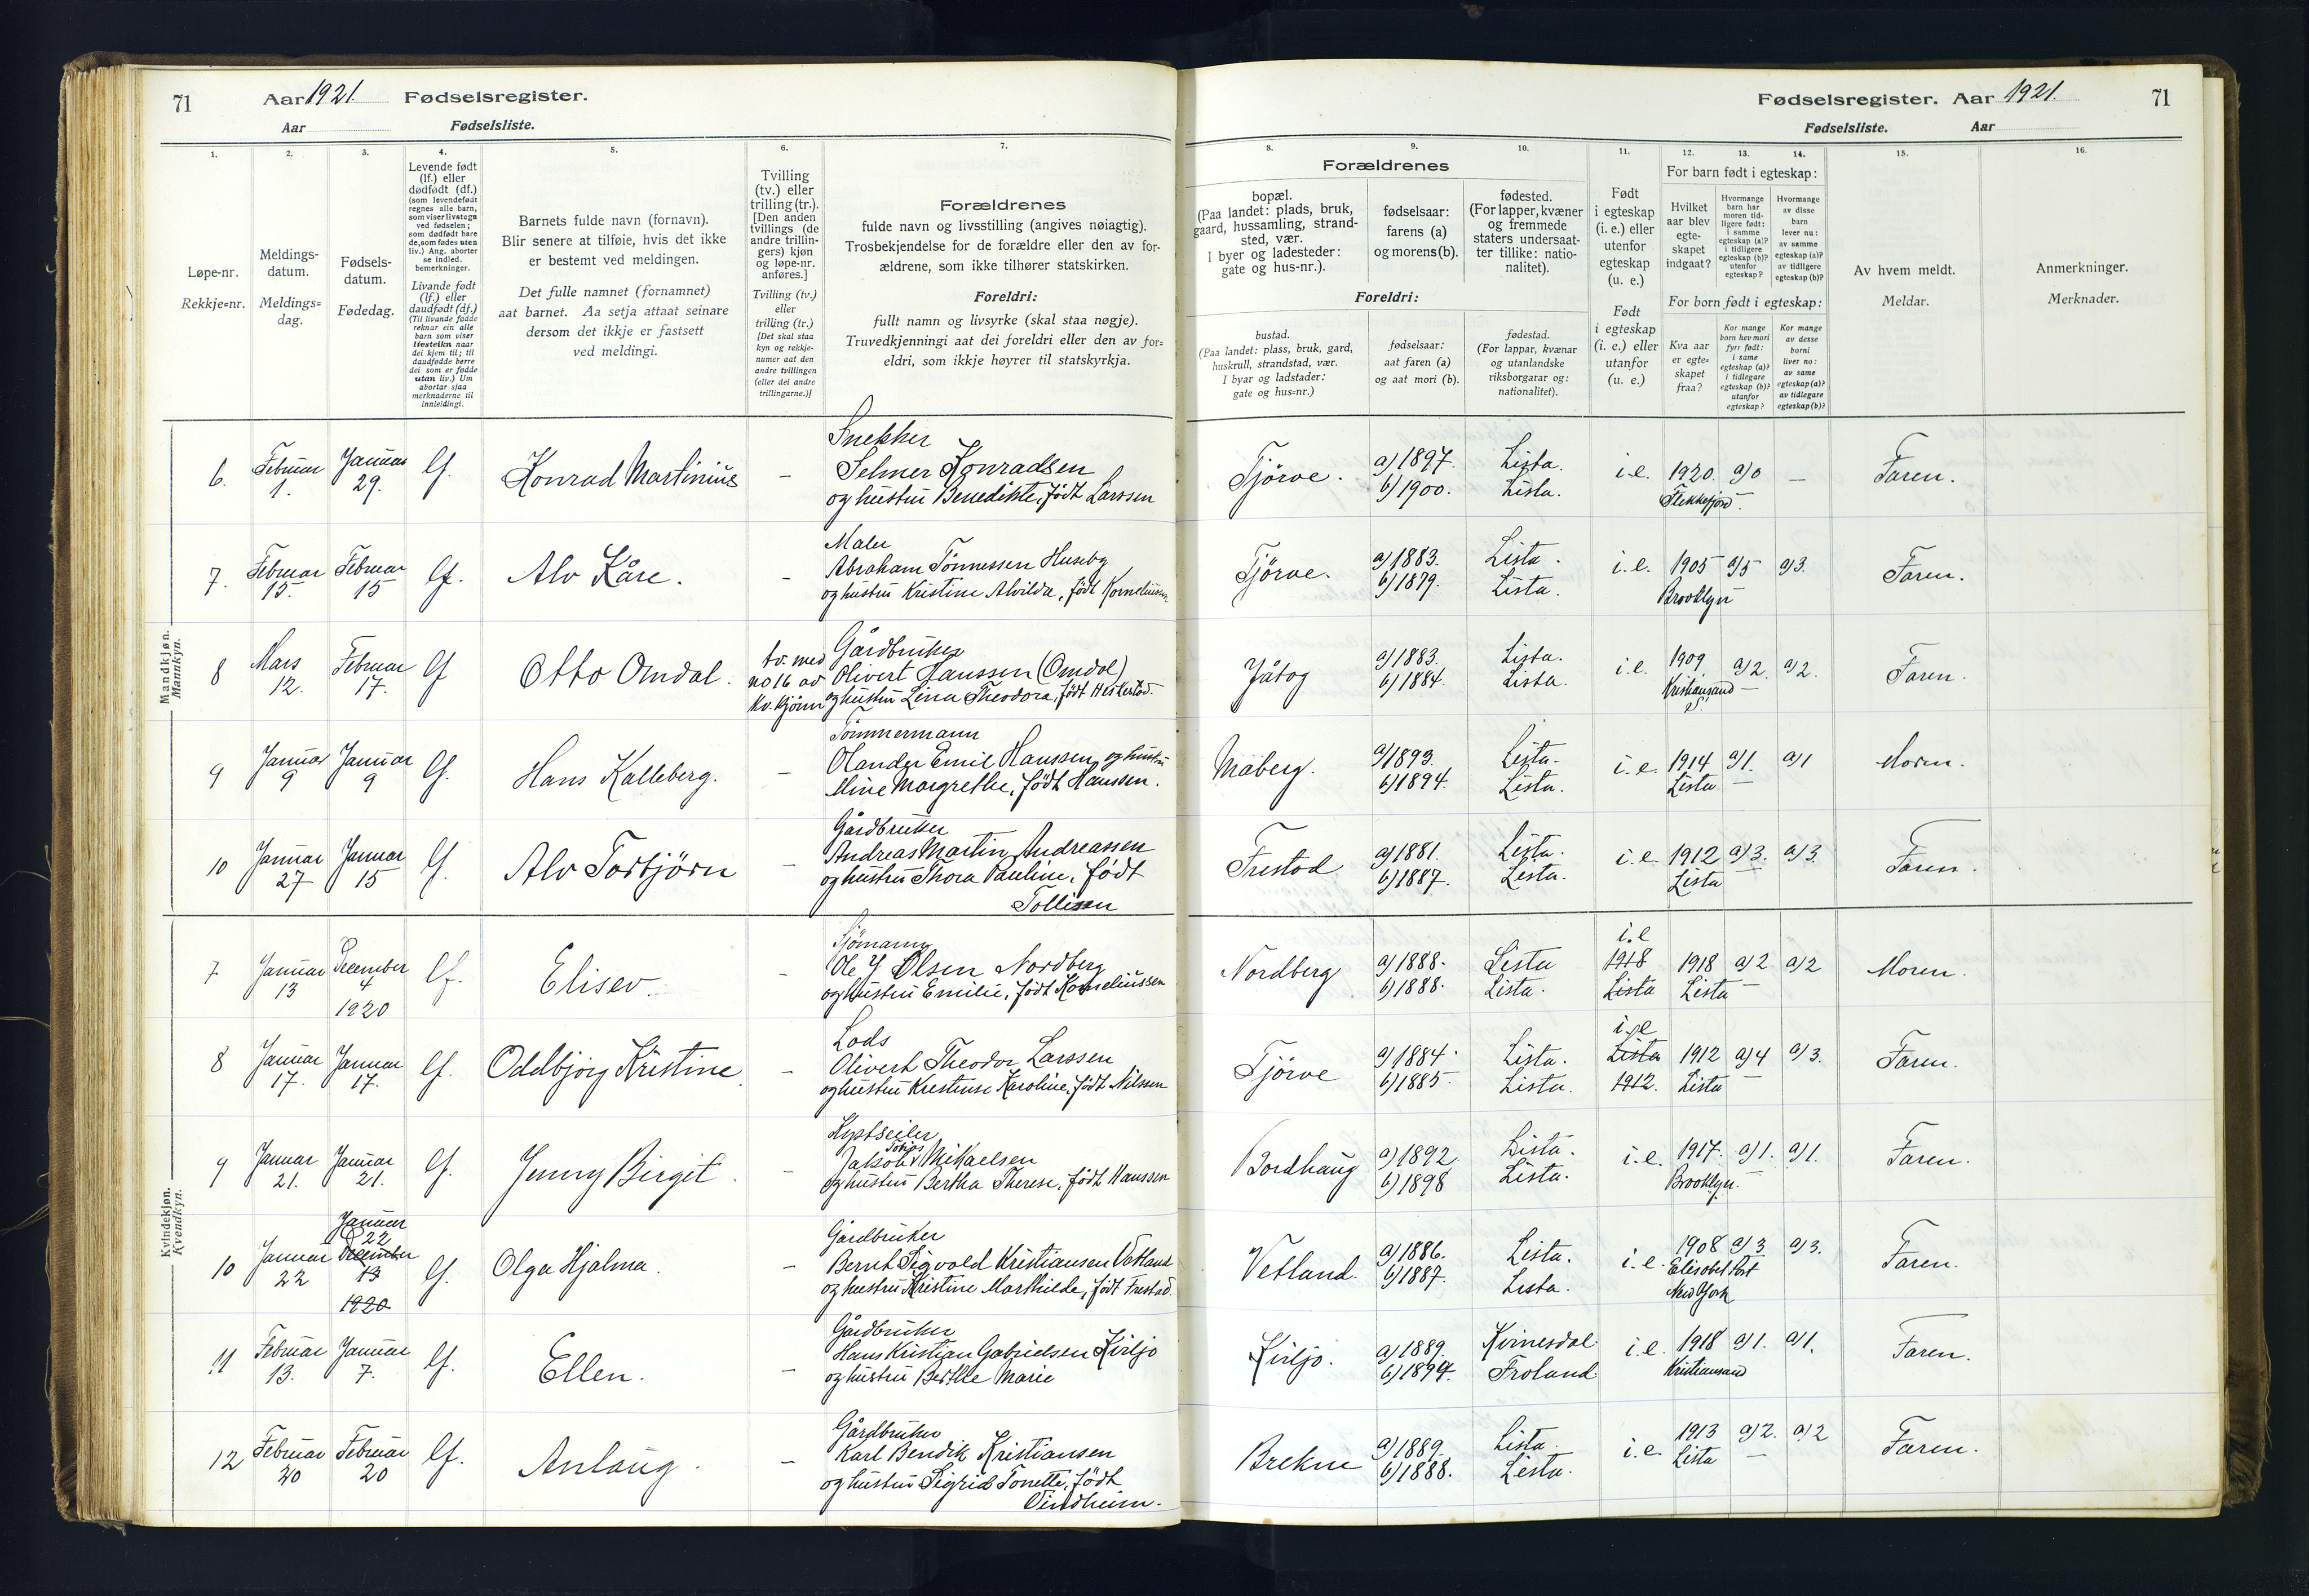 71 Aar 1921. Fødselsregister.
Aar Fødselsliste.
Fødselsregister. Aar 1921. 71
Fødselsliste. Aar
1. 2. 3. 4. 5. 6. 7. 8. 9. 10. 11. 12. 13. 14. 15. 16.
Løpe-nr.
Rekkje=nr.
Meldings-
datum.
Meldings=
dag.
Fødsels-
datum.
Fødedag.
Levende født
(lf.) eller
dødfødt (df.)
(som levendefødt
regnes alle barn,
som viser livstegn
ved fødselen;
som dødfødt bare
de, som fødes uten
liv.) Ang. aborter
se indled.
bemerkninger.
Livande født
(lf.) eller
daudfødt (df.)
(Til livande fødde
reknar ein alle
barn som viser
livsteikn naar
dei kjem til; til
daudfødde berre
dei som er fødde
utan liv.) Um
abortar sjaa
merknaderne til
innleidingi.
Barnets fulde navn (fornavn).
Blir senere at tilføie, hvis det ikke
er bestemt ved meldingen.
Det fulle namnet (fornamnet)
aat barnet. Aa setja attaat seinare
dersom det ikkje er fastsett
ved meldingi.
Tvilling
(tv.) eller
trilling (tr.).
[Den anden
tvillings (de
andre trillin-
gers) kjøn
og løpe-nr.
anføres.]
Tvilling (tv.)
eller
trilling (tr.)
[Det skal staa
kyn og rekkje-
numer aat den
andre tvillingen
(eller dei andre
trillingarne.)]
Forældrenes
fulde navn og livsstilling (angives nøiagtig).
Trosbekjendelse for de forældre eller den av for-
ældrene, som ikke tilhører statskirken.
Foreldri:
fullt namn og livsyrke (skal staa nøgje).
Truvedkjenningi aat dei foreldri eller den av for=
eldri, som ikkje høyrer til statskyrkja.
Forældrenes
bopæl.
(Paa landet: plads, bruk,
gaard, hussamling, strand-
sted, vær.
I byer og ladesteder:
gate og hus-nr.).
fødselsaar:
farens (a)
og morens (b).
fødested.
(For lapper, kvæner
og fremmede
staters undersaat-
ter tillike: natio-
nalitet).
Foreldri:
bustad.
(Paa landet: plass, bruk, gard,
huskrull, strandstad, vær.
I byar og ladstader:
gate og hus=nr.)
fødselsaar:
aat faren (a)
og aat mori (b).
fødestad.
(For lappar, kvænar
og utanlandske
riksborgarar og:
nationalitet).
Født
i egteskap
(i. e.) eller
utenfor
egteskap
(u. e.)
Født
i egteskap
(i. e.) eller
utanfor
(u. e.)
For barn født i egteskap:
Hvilket
aar blev
egte-
skapet
indgaat?
Hvormange
barn har
moren tid-
ligere født:
i samme
egteskap (a)?
i tidligere
egteskap (b)?
utenfor
egteskap?
Hvormange
av disse
barn
lever nu:
av samme
egteskap (a)?
av tidligere
egteskap (b)?
For born født i egteskap:
Kva aar
er egte=
skapet
fraa?
Kor mange
born hev mori
fyrr født:
i same
egteskap (a)?
i tidlegare
egteskap (b)?
utanfor
egteskap?
Kor mange
av desse
borni
liver no:
av same
egteskap (a)?
av tidlegare
egteskap (b)?
Av hvem meldt.
Meldar.
Anmerkninger.
Merknader.
Mandkjøn.
Mannkyn.
6. Februar 1. Januar 29. lf. Konrad Martinius –
Snekker
Selmer Konradsen
og hustru Benedikte, født Larssen
Tjörve. a) 1897. Lista. i.e. 1920. a) 0 – Faren.
b) 1900. Lista. Flekkefjord –
7. Februar 15. Februar 15 lf. Alv Kåre. –
Maler
Abraham Tönnessen Huseby
og hustru Kristine Alvilda, født Korneliussen
Tjörve. a) 1883. Lista. i.e. 1905 a) 5 a) 3. Faren.
b) 1879. Lista. Brooklyn
8 Mars 12. Februar 17. lf Otto Omdal.
tv. med
no 16 av
kv. kjönn
Gårdbruker
Olivert Hanssen (Omdal)
og hustru Lina Theodora, født Heskestad.
Jåtog a) 1883. Lista. i.e. 1909 a) 2. a) 2. Faren.
b) 1884. Lista. Kristiansand S. –
9 Januar 9 Januar 9 lf. Hans Kalleberg. –
Tömmermann
Olander Emil Hanssen og hustru
Mine Margrethe, født Hanssen.
Måberg. a) 1893. Lista. i.e. 1914 a) 1. a) 1 Moren.
b) 1894. Lista. Lista –
10 Januar 27 Januar 15 lf. Alv Torbjörn –
Gårdbruker
Andreas Martin Andreassen
og hustru Thora Pauline, født
Tollisen
Frestad a) 1881. Lista. i.e. 1912 a) 3. a) 3. Faren.
b) 1887. Lista. Lista –
Kvindekjøn.
Kvendkyn.
7 Januar 13 December 4 1920 lf. Elisev. –
Sjömann
Ole J Olsen Nordberg
og hustru Emilie, født Korneliussen
Nordberg a) 1888. Lista i.e 1918 1918 a) 2 a) 2 Moren.
b) 1888. Lista. Lista Lista –
8 Januar 17. Januar 17. lf. Oddbjörg Kristine. –
Lods
Olivert Theodor Larssen
og hustru Kristense Karoline, født Nilssen
Tjörve a) 1884. Lista. i.e Lista 1912 a) 4 a) 3. Faren.
b) 1885. Lista. 1912. Lista –
9 Januar 21. Januar 21. lf. Jenny Birgit. –
Kystseiler
Jakob Tobias Mikaelsen
og hustru Bertha Therese, født Hanssen
Bordhaug a) 1892. Lista. i.e. 1917. a) 1. a) 1. Faren.
b) 1898 Lista. Brooklyn. –
10 Januar 22 Januar 22 December 13 1920 lf. Olga Hjalma. –
Gårdbruker
Bernt Sigvald Kristiansen Vetland
og hustru Kristine Marthilde, født Frestad.
Vetland. a) 1886. Lista. i.e. 1908 a) 3 a) 3. Faren.
b) 1887. Lista. Elisabet Port
New York
11 Februar 13. Januar 7. lf. Ellen. –
Gårdbruker
Hans Kristian Gabrielsen Kviljo
og hustru Berthe Marie
Kviljo. a) 1889. Kvinesdal. i.e. 1918 a) 1. a) 1. Faren.
b) 1894. Froland Kristiansand
12 Februar 20 Februar 20 lf. Anlaug. –
Gårdbruker
Karl Bendik Kristiansen
og hustru Sigrid Tonette, født
Vindheim.
Brekne a) 1889. Lista. i.e. 1913 a) 2. a) 2 Faren.
b) 1888. Lista. Lista –